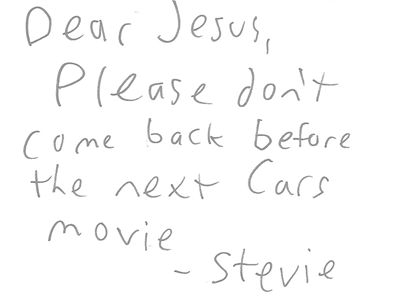 Dear Jesus,
Please don't
come back before
the next Cars
movie
- Stevie